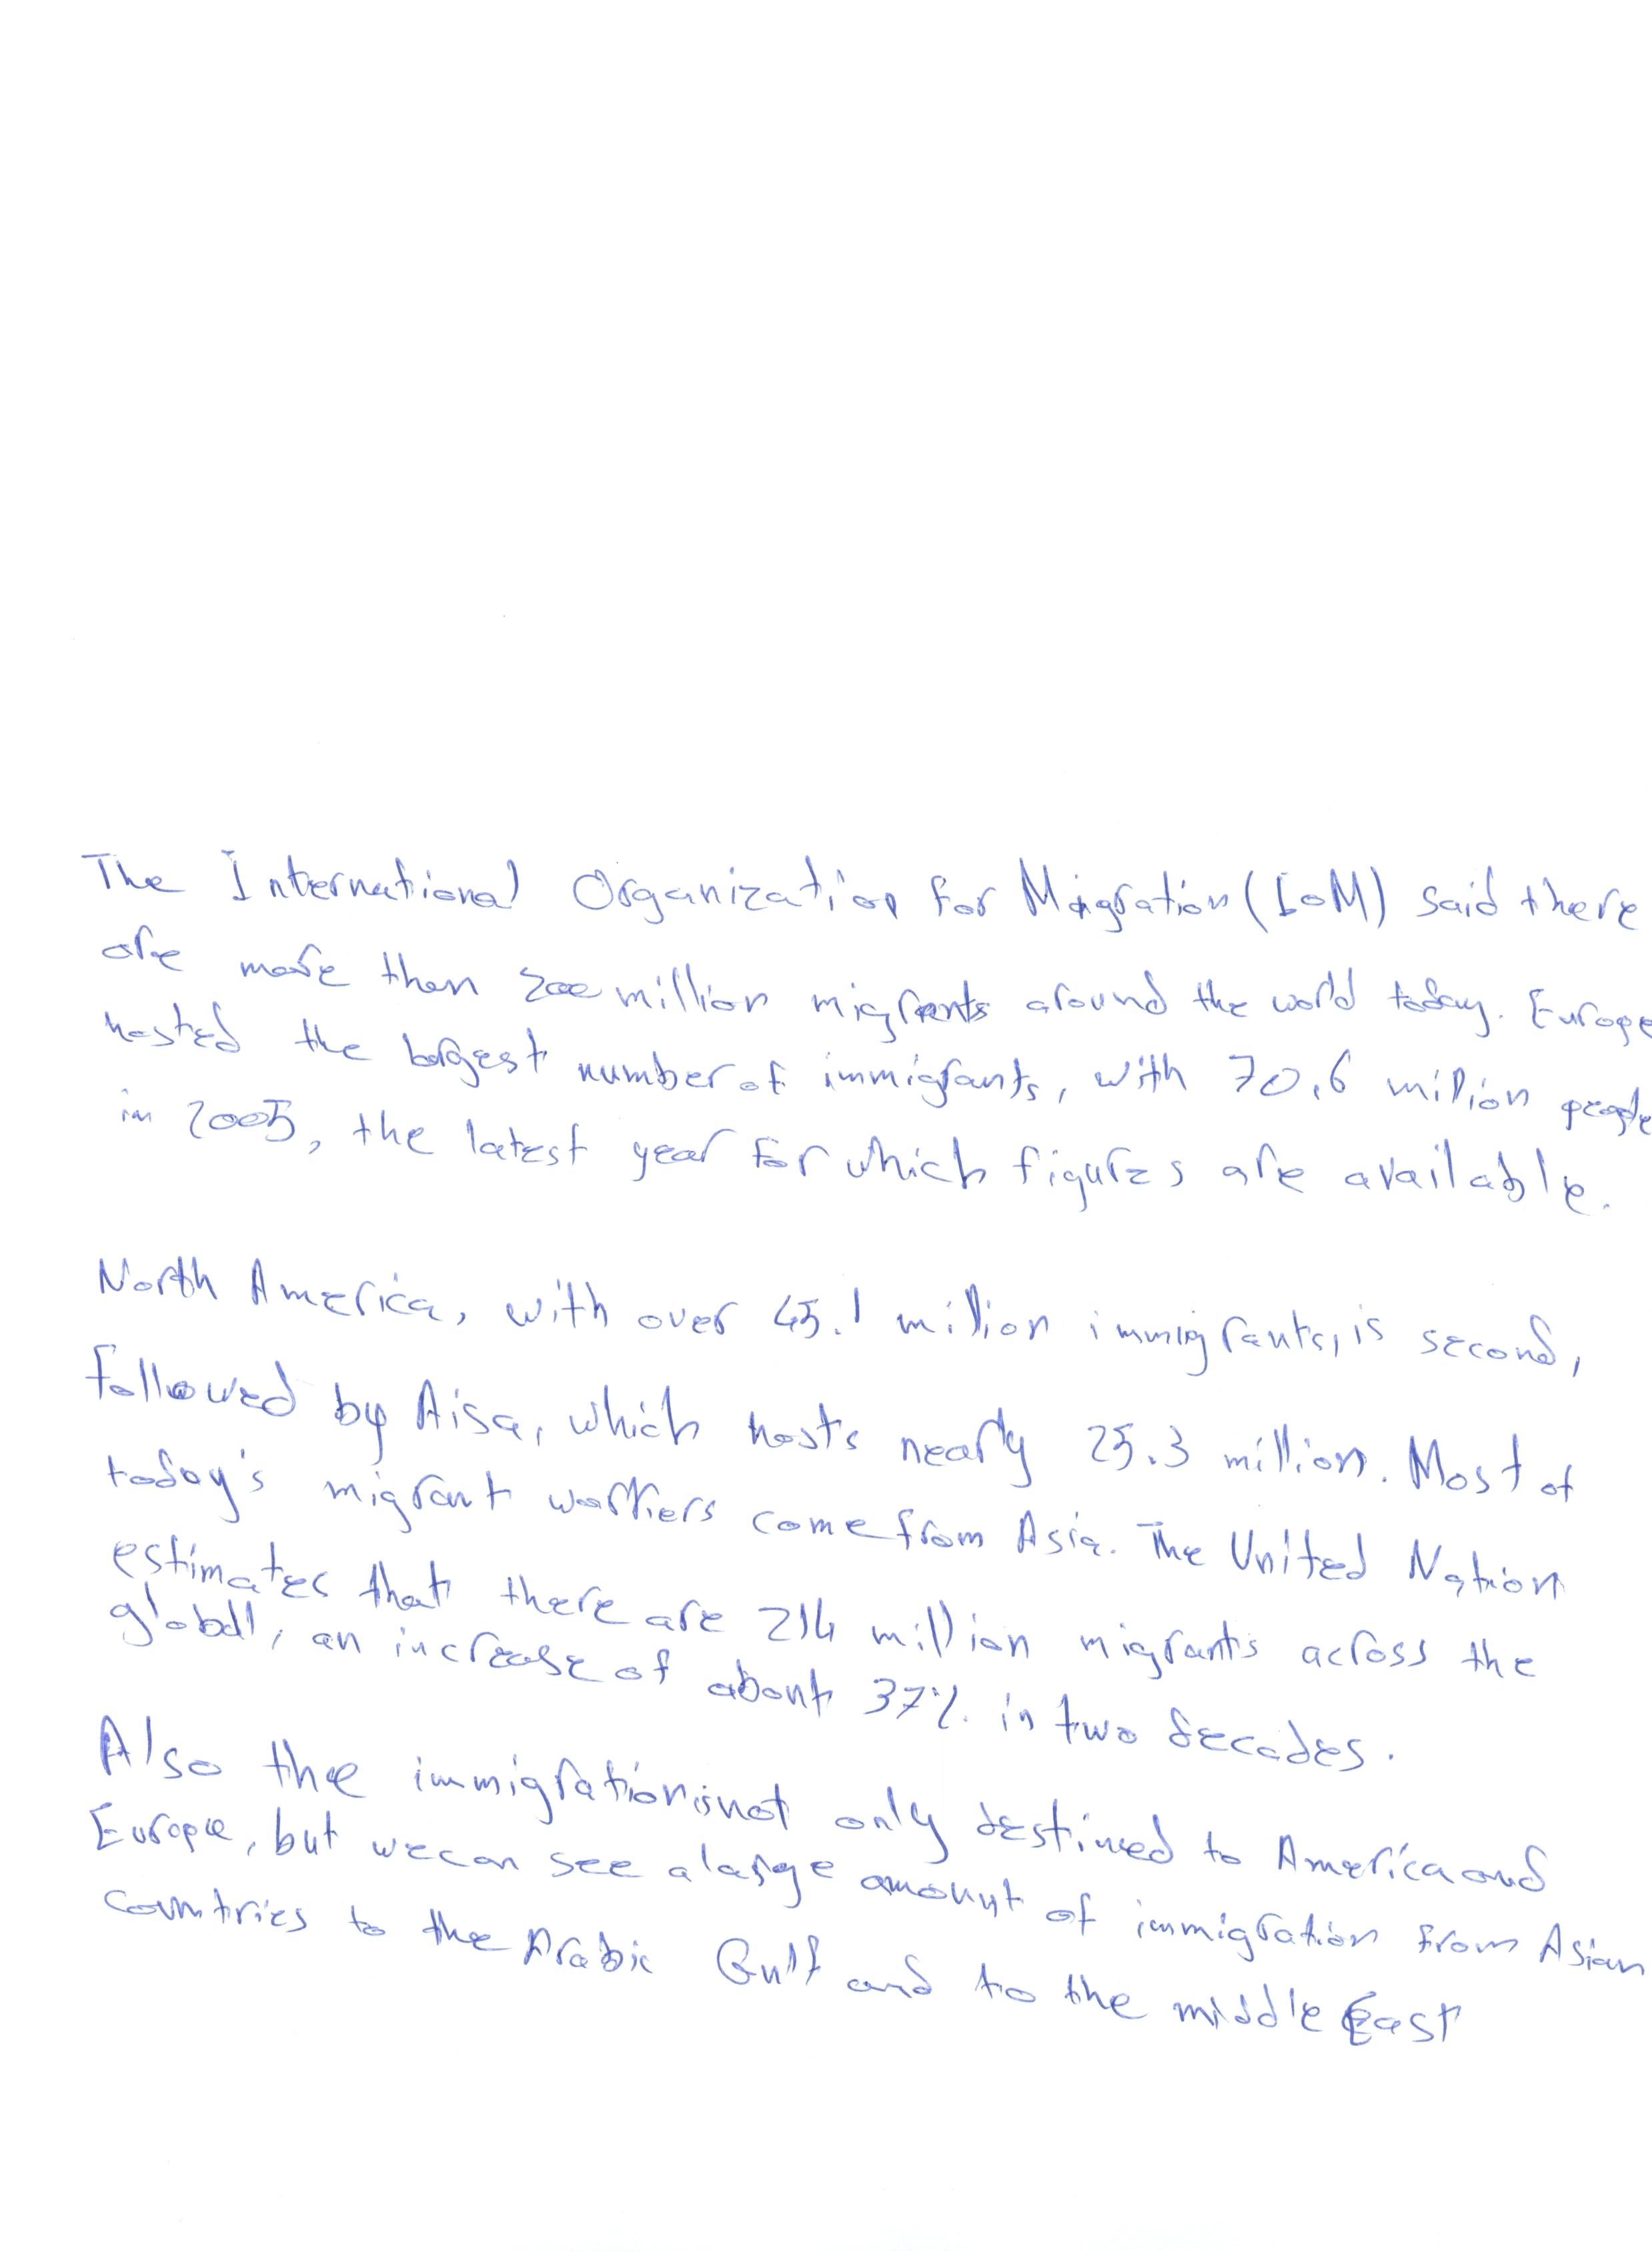 The International Organization for Migration (IOM) said there
are more than 200 million migrants around the world today. Europe
hosted the largest number of immigrants, with 70.6 million people
in 2005, the latest year for which figures are available.
North America, with over 45.1 million immigrants, is second,
followed by Aisa, which hosts nearly 25.3 million. Most of
today's migrant workers come from Asia. The United Nation
estimates that there are 214 million migrants across the
globall, an increase of about 37% in two decades.
Also the immigration is not only destined to America and
Europe, but we can see a large amount of immigration from Asian
countries to the Arabic Gulf and to the middle East